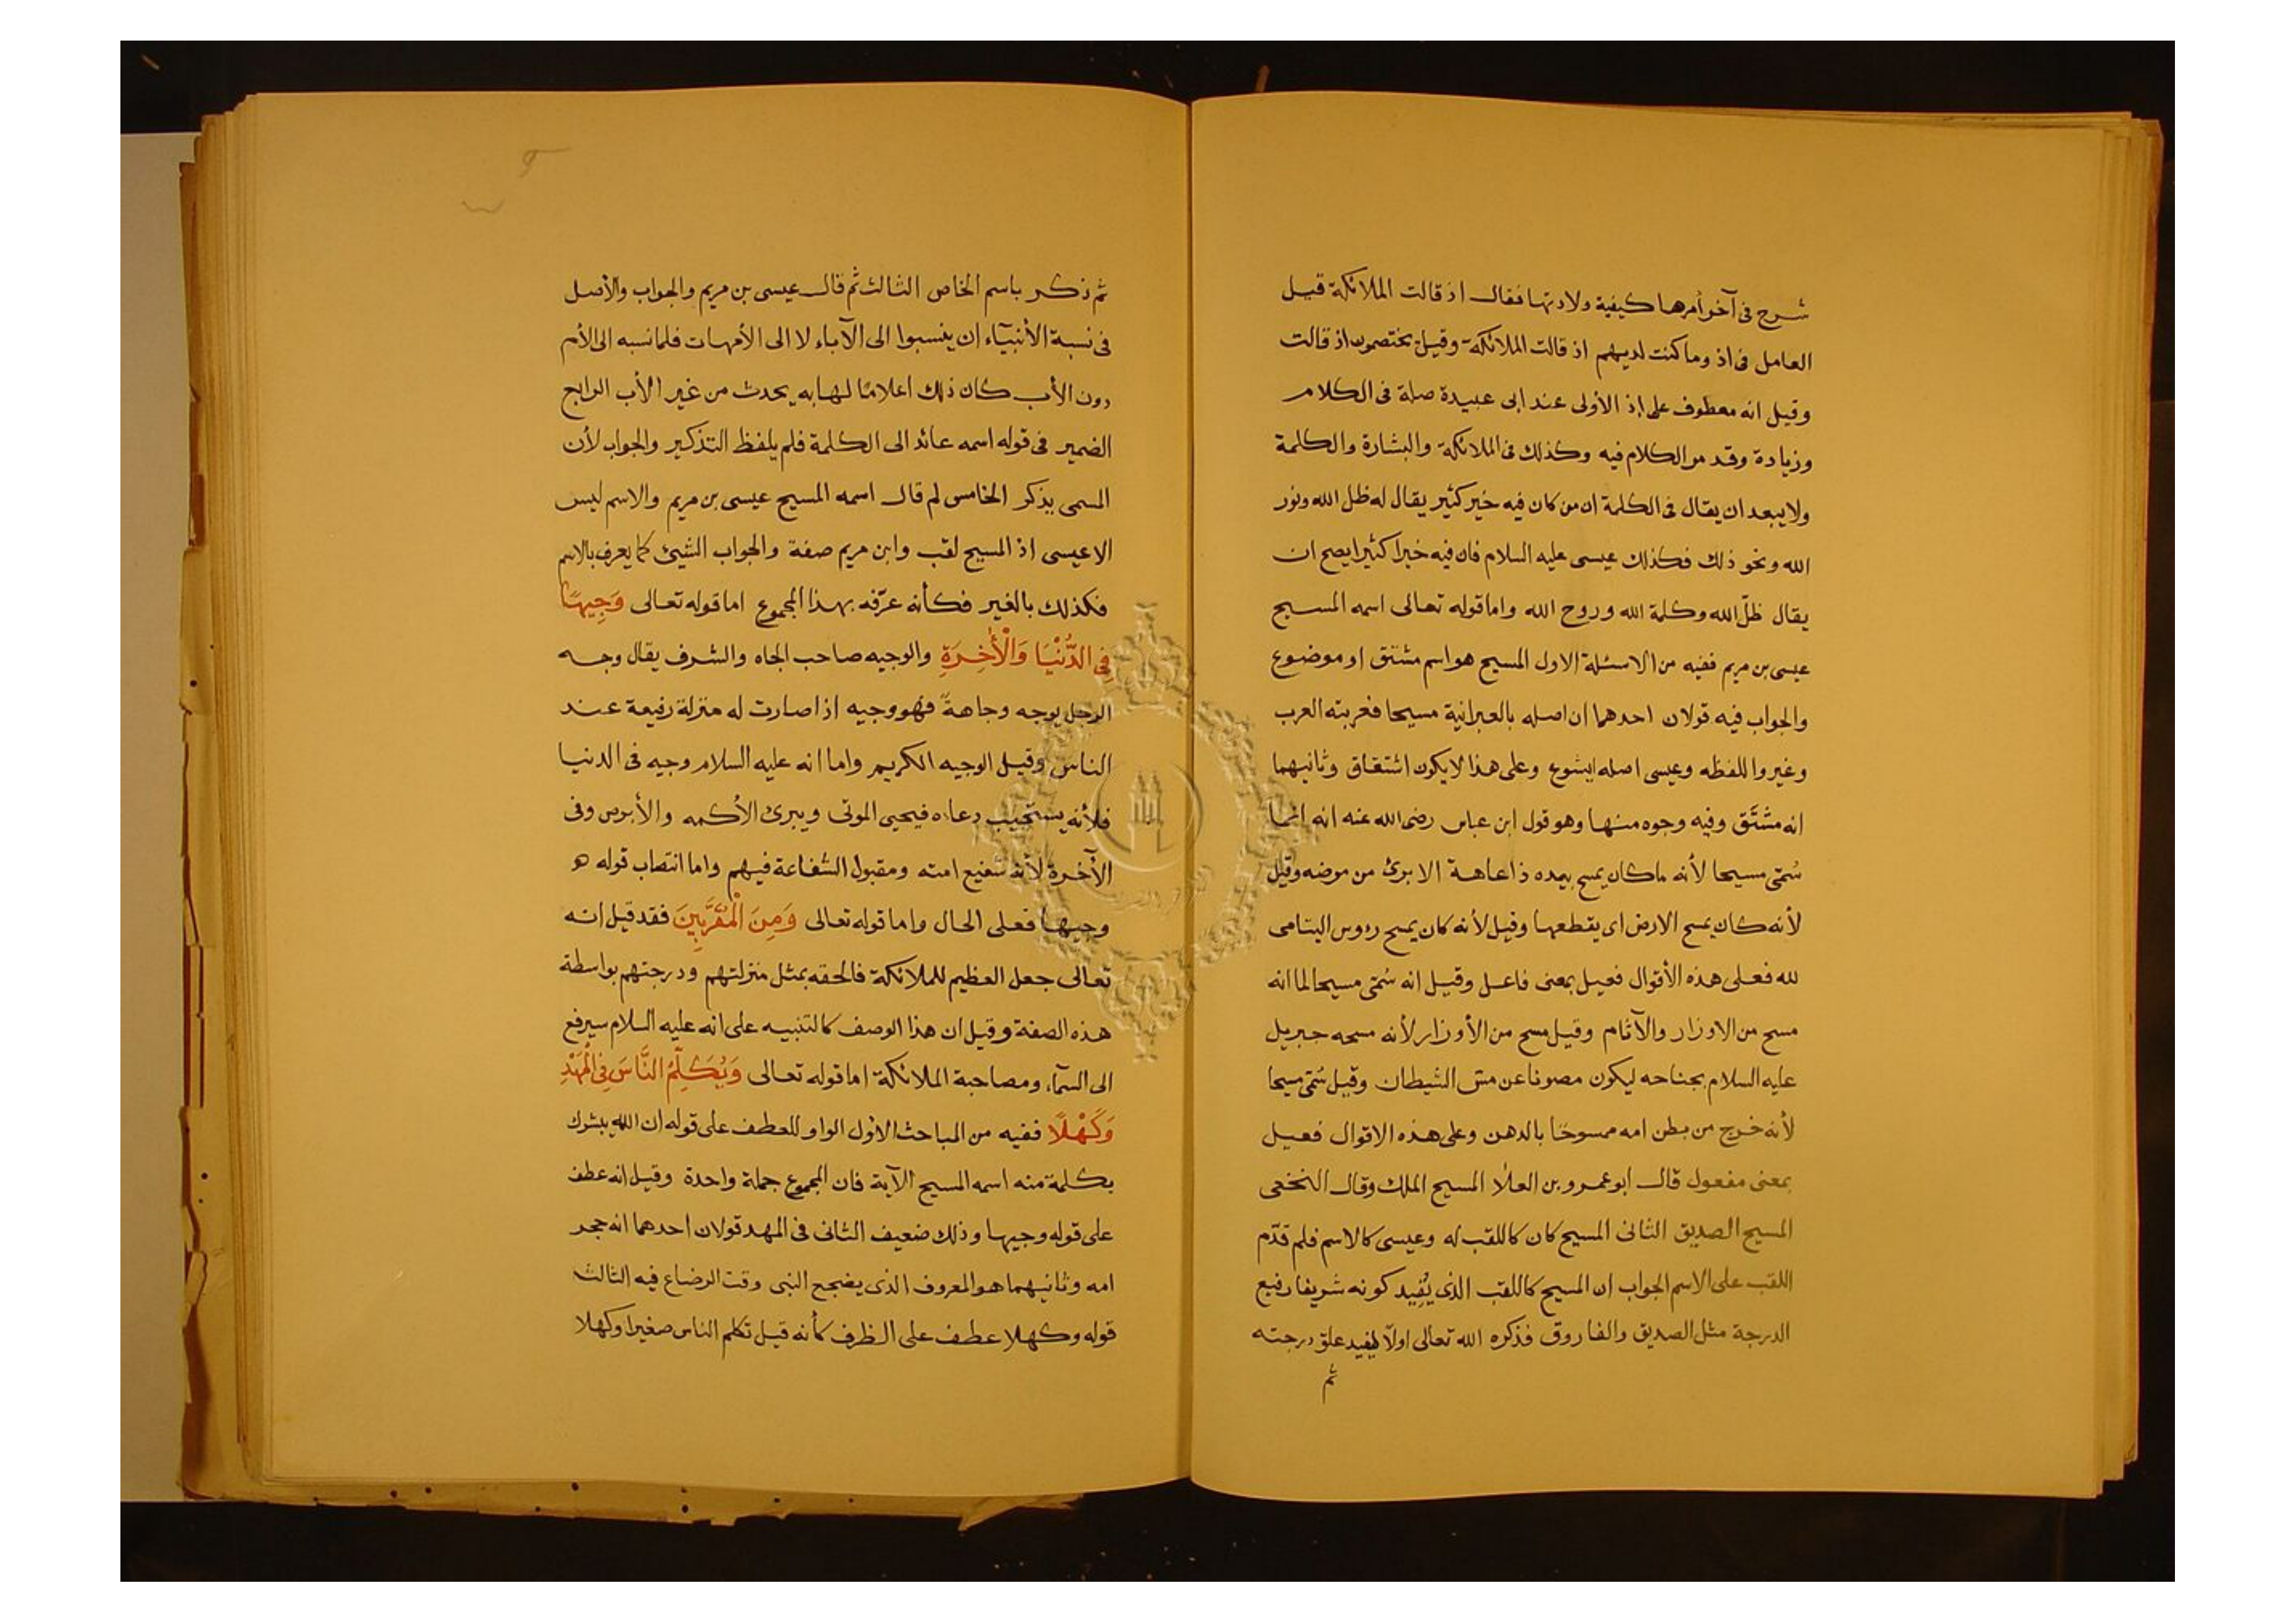 شرح فى آخر أمرها كيفية ولادتها فقال اذ قالت الملائكة قيل
العامل فى اذ وما كنت لديهم اذ قالت الملائكة وقيل يختصمون اذ قالت
وقيل انه معطوف على إذ الأولى عند ابى عبيدة صلة فى الكلام
وزيادة وقد مر الكلام فيه وكذلك فى الملائكة والبشارة والكلمة
ولا يبعد ان يقال فى الكلمة ان من كان فيه خير كثير يقال له ظل الله ونور
الله ونحو ذلك فكذلك عيسى عليه السلام فان فيه خيرا كثيرا يصح ان
يقال ظلّ الله وكلمة الله وروح الله واما قوله تعالى اسمه المسيح
عيسى بن مريم ففيه من الاسئلة الاول المسيح هو اسم مشتق او موضوع
والجواب فيه قولان احدهما ان اصله بالعبرانية مسيحا فعربته العرب
وغيروا للفظه وعيسى اصله ايشوع وعلى هذا لا يكون اشتقاق وثانيهما
انه مشتَق وفيه وجوه منها وهو قول ابن عباس رضى الله عنه انه انما
سُمّى مسيحا لأنه ما كان يمسح بيده ذا عاهة الا برئ من مرضه وقيل
لأنه كان يمسح الارض اى يقطعها وقيل لأنه كان يمسح رءوس اليتامى
لله فعلى هذه الأقوال فعيل بمعنى فاعل وقيل انه سُمّى مسيحا لما انه
مسح من الاوزار والآثام وقيل مسح من الأوزار لأنه مسحه جبريل
عليه السلام بجناحه ليكون مصونا عن مسّ الشيطان وقيل سُمّى مسيحا
لأنه خرج من بطن امه ممسوحًا بالدهن وعلى هذه الاقوال فعيل
بمعنى مفعول قال ابو عمرو بن العلا المسيح الملك وقال النخعى
المسيح الصديق الثانى المسيح كان كاللقب له وعيسى كالاسم فلم قدّم
اللقب على الاسم الجواب ان المسيح كاللقب الذى يُفيد كونه شريفا رفيع
الدرجة مثل الصديق والفاروق فذكره الله تعالى اولًا ليفيد علوّ درجته
ثم
ثم ذكر باسم الخاص الثالث ثم قال عيسى بن مريم والجواب والأصل
فى نسبة الأنبيآء ان ينسبوا الى الآباء لا الى الأمهات فلما نسبه الى الأم
دون الأب كان ذلك اعلامًا لها به يحدث من غير الأب الرابع
الضمير فى قوله اسمه عائد الى الكلمة فلم يلفظ التذكير والجواب لأن
المسمى يذكر الخامس لم قال اسمه المسيح عيسى بن مريم والاسم ليس
الا عيسى اذ المسيح لقب وابن مريم صفة والجواب الشيئ كما يعرف بالاسم
فكذلك بالغير فكأنه عرّفه بهذا المجموع اما قوله تعالى وَجِيهًا
فِى الدُّنْيَا وَالْأَخِرَةِ والوجيه صاحب الجاه والشرف يقال وجه
الرجل يوجه وجاهةً فهو وجيه اذا صارت له منزلة رفيعة عند
الناس وقيل الوجيه الكريم واما انه عليه السلام وجيه فى الدنيا
فلأنه يستجيب دعاءه فيحيى الموتى ويبرئ الأكمه والأبرص وفى
الآخرة لأنه شفيع امته ومقبول الشفاعة فيهم واما انتصاب قوله هو
وجيها فعلى الحال واما قوله تعالى وَمِنَ الْمُقَرَّبِينَ فقد قيل انه
تعالى جعل العظيم للملائكة فالحقه بمثل منزلتهم ودرجتهم بواسطة
هذه الصفة وقيل ان هذا الوصف كالتنبيه على انه عليه السلام سيرفع
الى السمآء ومصاحبة الملائكة اما قوله تعالى وَيُكَلِّمُ النَّاسَ فِى الْمَهْدِ
وَكَهْلًا ففيه من المباحث الأوّل الواو للعطف على قوله ان الله يبشرك
بكلمة منه اسمه المسيح الآية فان المجموع جملة واحدة وقيل انه عطف
على قوله وجيها وذلك ضعيف الثانى فى المهد قولان احدهما انه حجر
امه وثانيهما هو المعروف الذى يضجع النبى وقت الرضاع فيه الثالث
قوله وكهلا عطف على الظرف كأنه قيل تكلم الناس صغيرا وكهلا